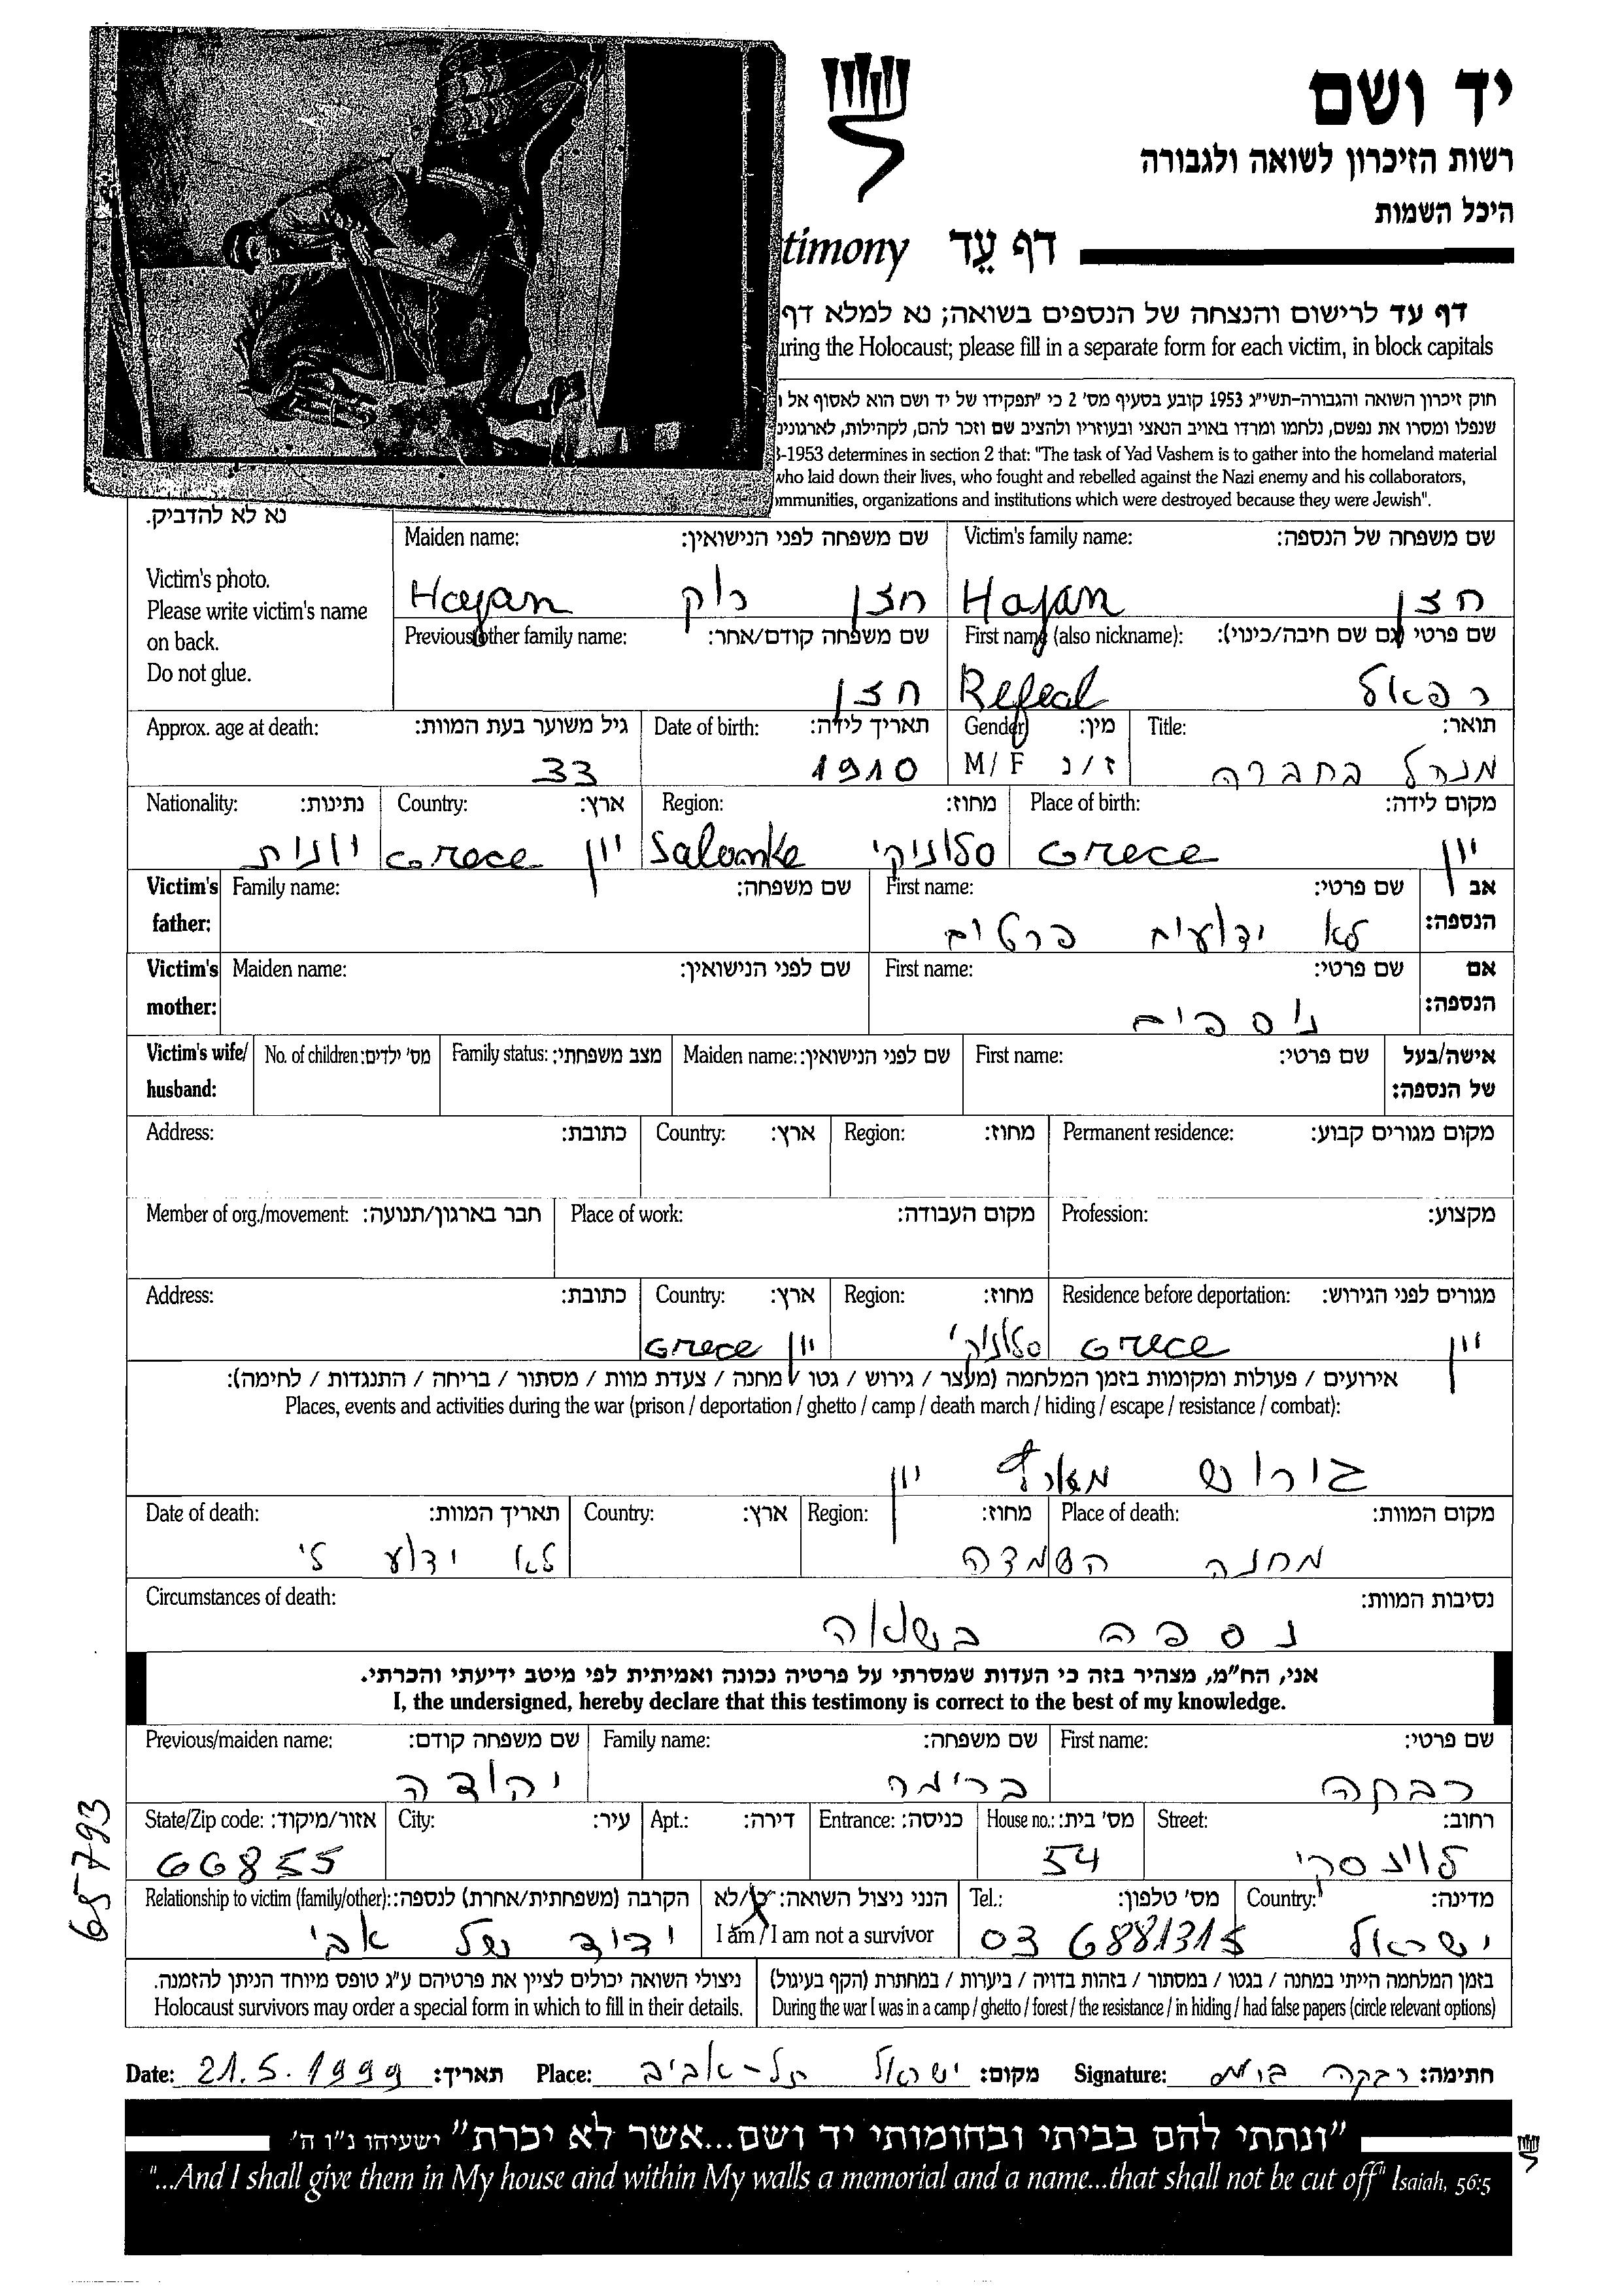 יד ושם
רשות הזיכרון לשואה ולגבורה
היכל השמות
timony דף עֵד
דף עד לרישום והנצחה של הנספים בשואה; נא למלא דף
uring the Holocaust; please fill in a separate form for each victim, in block capitals
חוק זיכרון השואה והגבורה-תשי״ג 1953 קובע בסעיף מס' 2 כי "תפקידו של יד ושם הוא לאסוף אל
שנפלו ומסרו את נפשם, נלחמו ומרדו באויב הנאצי ובעוזריו ולהציב שם וזכר להם, לקהילות, לארגונים
3-1953 determines in section 2 that: "The task of Yad Vashem is to gather into the homeland material
who laid down their lives, who fought and rebelled against the Nazi enemy and his collaborators,
mmunities, organizations and institutions which were destroyed because they were Jewish".
נא לא להדביק.
Victim's photo.
Please write victim's name
on back.
Do not glue.
שם משפחה של הנספה: Victim's family name: שם משפחה לפני הנישואין: Maiden name:
חזן Hajan חזן Hajan
שם פרטי (גם שם חיבה/כינוי): First name (also nickname): שם משפחה קודם/אחר: Previous/other family name:
רפאל Refeal חזן
תואר: Title: מין: Gender תאריך לידה: Date of birth: גיל משוער בעת המוות: Approx. age at death:
מנהל בחברה ז / נ M / F 1910 33
מקום לידה: Place of birth: מחוז: Region: ארץ: Country: נתינות: Nationality:
יוון Grece סלוניקי Salonke יוון Grece יוונית
אב הנספה: שם פרטי: First name: שם משפחה: Family name: Victim's father:
לא ידועים פרטים
אם הנספה: שם פרטי: First name: שם לפני הנישואין: Maiden name: Victim's mother:
נוספים
אישה/בעל של הנספה: שם פרטי: First name: שם לפני הנישואין: Maiden name: מצב משפחתי: Family status: מס' ילדים: No. of children: Victim's wife/ husband:
מקום מגורים קבוע: Permanent residence: מחוז: Region: ארץ: Country: כתובת: Address:
מקצוע: Profession: מקום העבודה: Place of work: חבר בארגון/תנועה: Member of org./movement:
מגורים לפני הגירוש: Residence before deportation: מחוז: Region: ארץ: Country: כתובת: Address:
יוון Grece סלוניקי יוון Grece
אירועים / פעולות ומקומות בזמן המלחמה (מעצר / גירוש / גטו / מחנה / צעדת מוות / מסתור / בריחה / התנגדות / לחימה):
Places, events and activities during the war (prison / deportation / ghetto / camp / death march / hiding / escape / resistance / combat):
גירוש מארץ יוון
מקום המוות: Place of death: מחוז: Region: ארץ: Country: תאריך המוות: Date of death:
מחנה השמדה לא ידוע לי
נסיבות המוות: Circumstances of death:
נספה בשואה
אני, הח"מ, מצהיר בזה כי העדות שמסרתי על פרטיה נכונה ואמיתית לפי מיטב ידיעתי והכרתי.
I, the undersigned, hereby declare that this testimony is correct to the best of my knowledge.
שם פרטי: First name: שם משפחה: Family name: שם משפחה קודם: Previous/maiden name:
רבקה יהודה
רחוב: Street: מס' בית: House no.: כניסה: Entrance: דירה: Apt.: עיר: City: אזור/מיקוד: State/Zip code:
לוינסקי 54 66855
מדינה: Country: מס' טלפון: Tel.: הנני ניצול השואה: כן/לא הקרבה (משפחתית/אחרת) לנספה: Relationship to victim (family/other):
ישראל 03 6881315 I am / I am not a survivor ידיד של אבי
בזמן המלחמה הייתי במחנה / בגטו / במסתור / בזהות בדויה / ביערות / במחתרת (הקף בעיגול)
During the war I was in a camp / ghetto / forest / the resistance / in hiding / had false papers (circle relevant options)
ניצולי השואה יכולים לציין את פרטיהם ע״ג טופס מיוחד הניתן להזמנה.
Holocaust survivors may order a special form in which to fill in their details.
חתימה: רבקה Signature: מקום: ישראל תל-אביב Place: תאריך: 21.5.1999 Date:
"ונתתי להם בביתי ובחומותי יד ושם...אשר לא יכרת" ישעיהו נ״ו ה'
"...And I shall give them in My house and within My walls a memorial and a name...that shall not be cut off" Isaiah, 56:5
695793